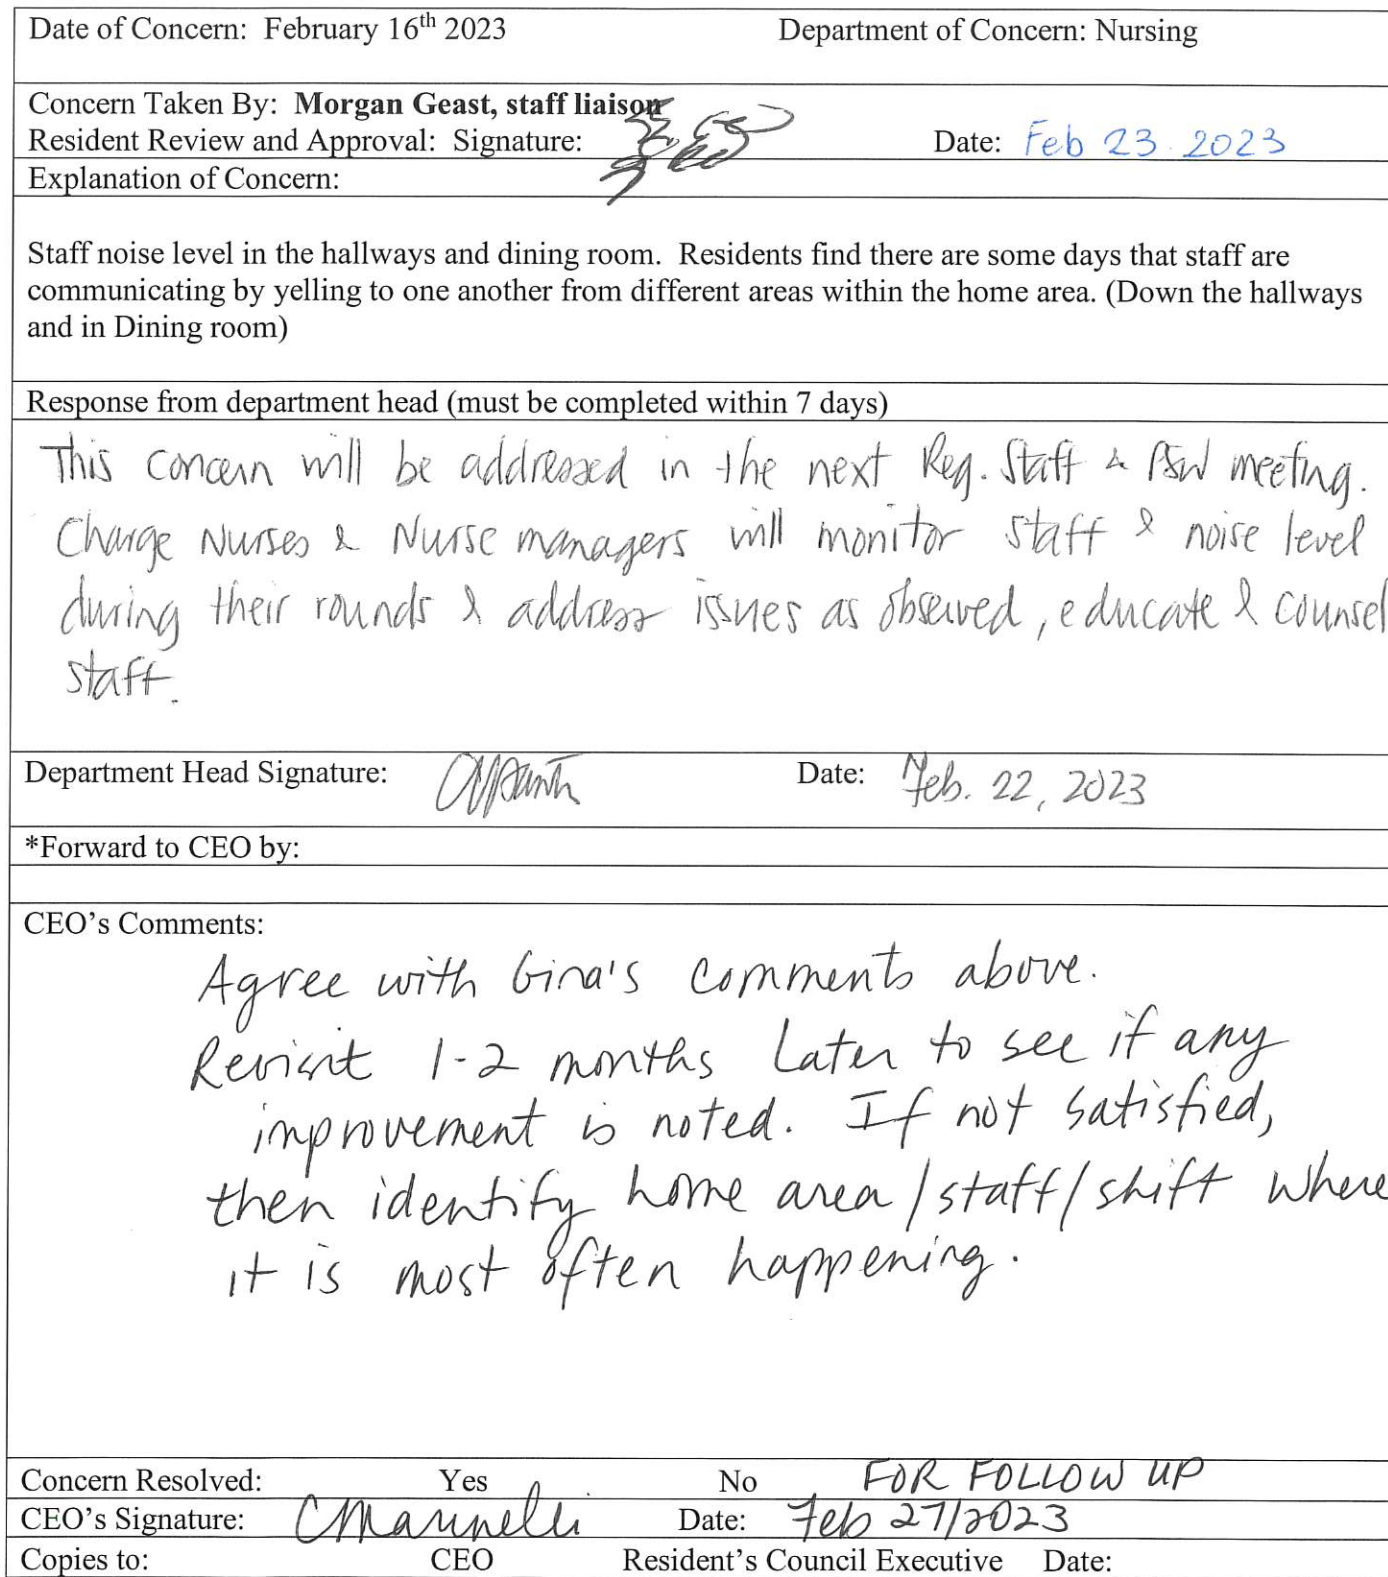 Date of Concern: February 16th 2023 Department of Concern: Nursing
Concern Taken By: Morgan Geast, staff liaison
Resident Review and Approval: Signature: Date: Feb 23 2023
Explanation of Concern:
Staff noise level in the hallways and dining room. Residents find there are some days that staff are
communicating by yelling to one another from different areas within the home area. (Down the hallways
and in Dining room)
Response from department head (must be completed within 7 days)
This concern will be addressed in the next Reg. Staff & PSW meeting.
Charge Nurses & Nurse managers will monitor staff & noise level
during their rounds & address issues as observed, educate & counsel
staff.
Department Head Signature: Date: Feb. 22, 2023
*Forward to CEO by:
CEO's Comments:
Agree with Gina's comments above.
Revisit 1-2 months later to see if any
improvement is noted. If not satisfied,
then identify home area/staff/shift where
it is most often happening.
Concern Resolved: Yes No FOR FOLLOW UP
CEO's Signature: CMarinelli Date: Feb 27/2023
Copies to: CEO Resident's Council Executive Date: